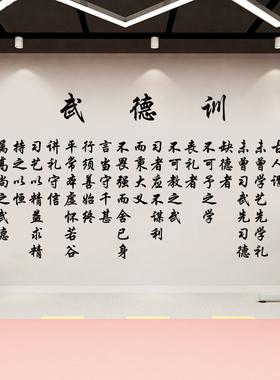 武德训
古人谓
未曾学艺先学礼
未曾习武先习德
缺德者
不可予之学
丧礼者
不可教之武
习者应不谋利
而秉大义
不畏强而舍己身
言当守千甚
行须善始终
平常本虚怀若谷
讲礼守信
习艺以精益求精
持之以恒
属高尚之武德